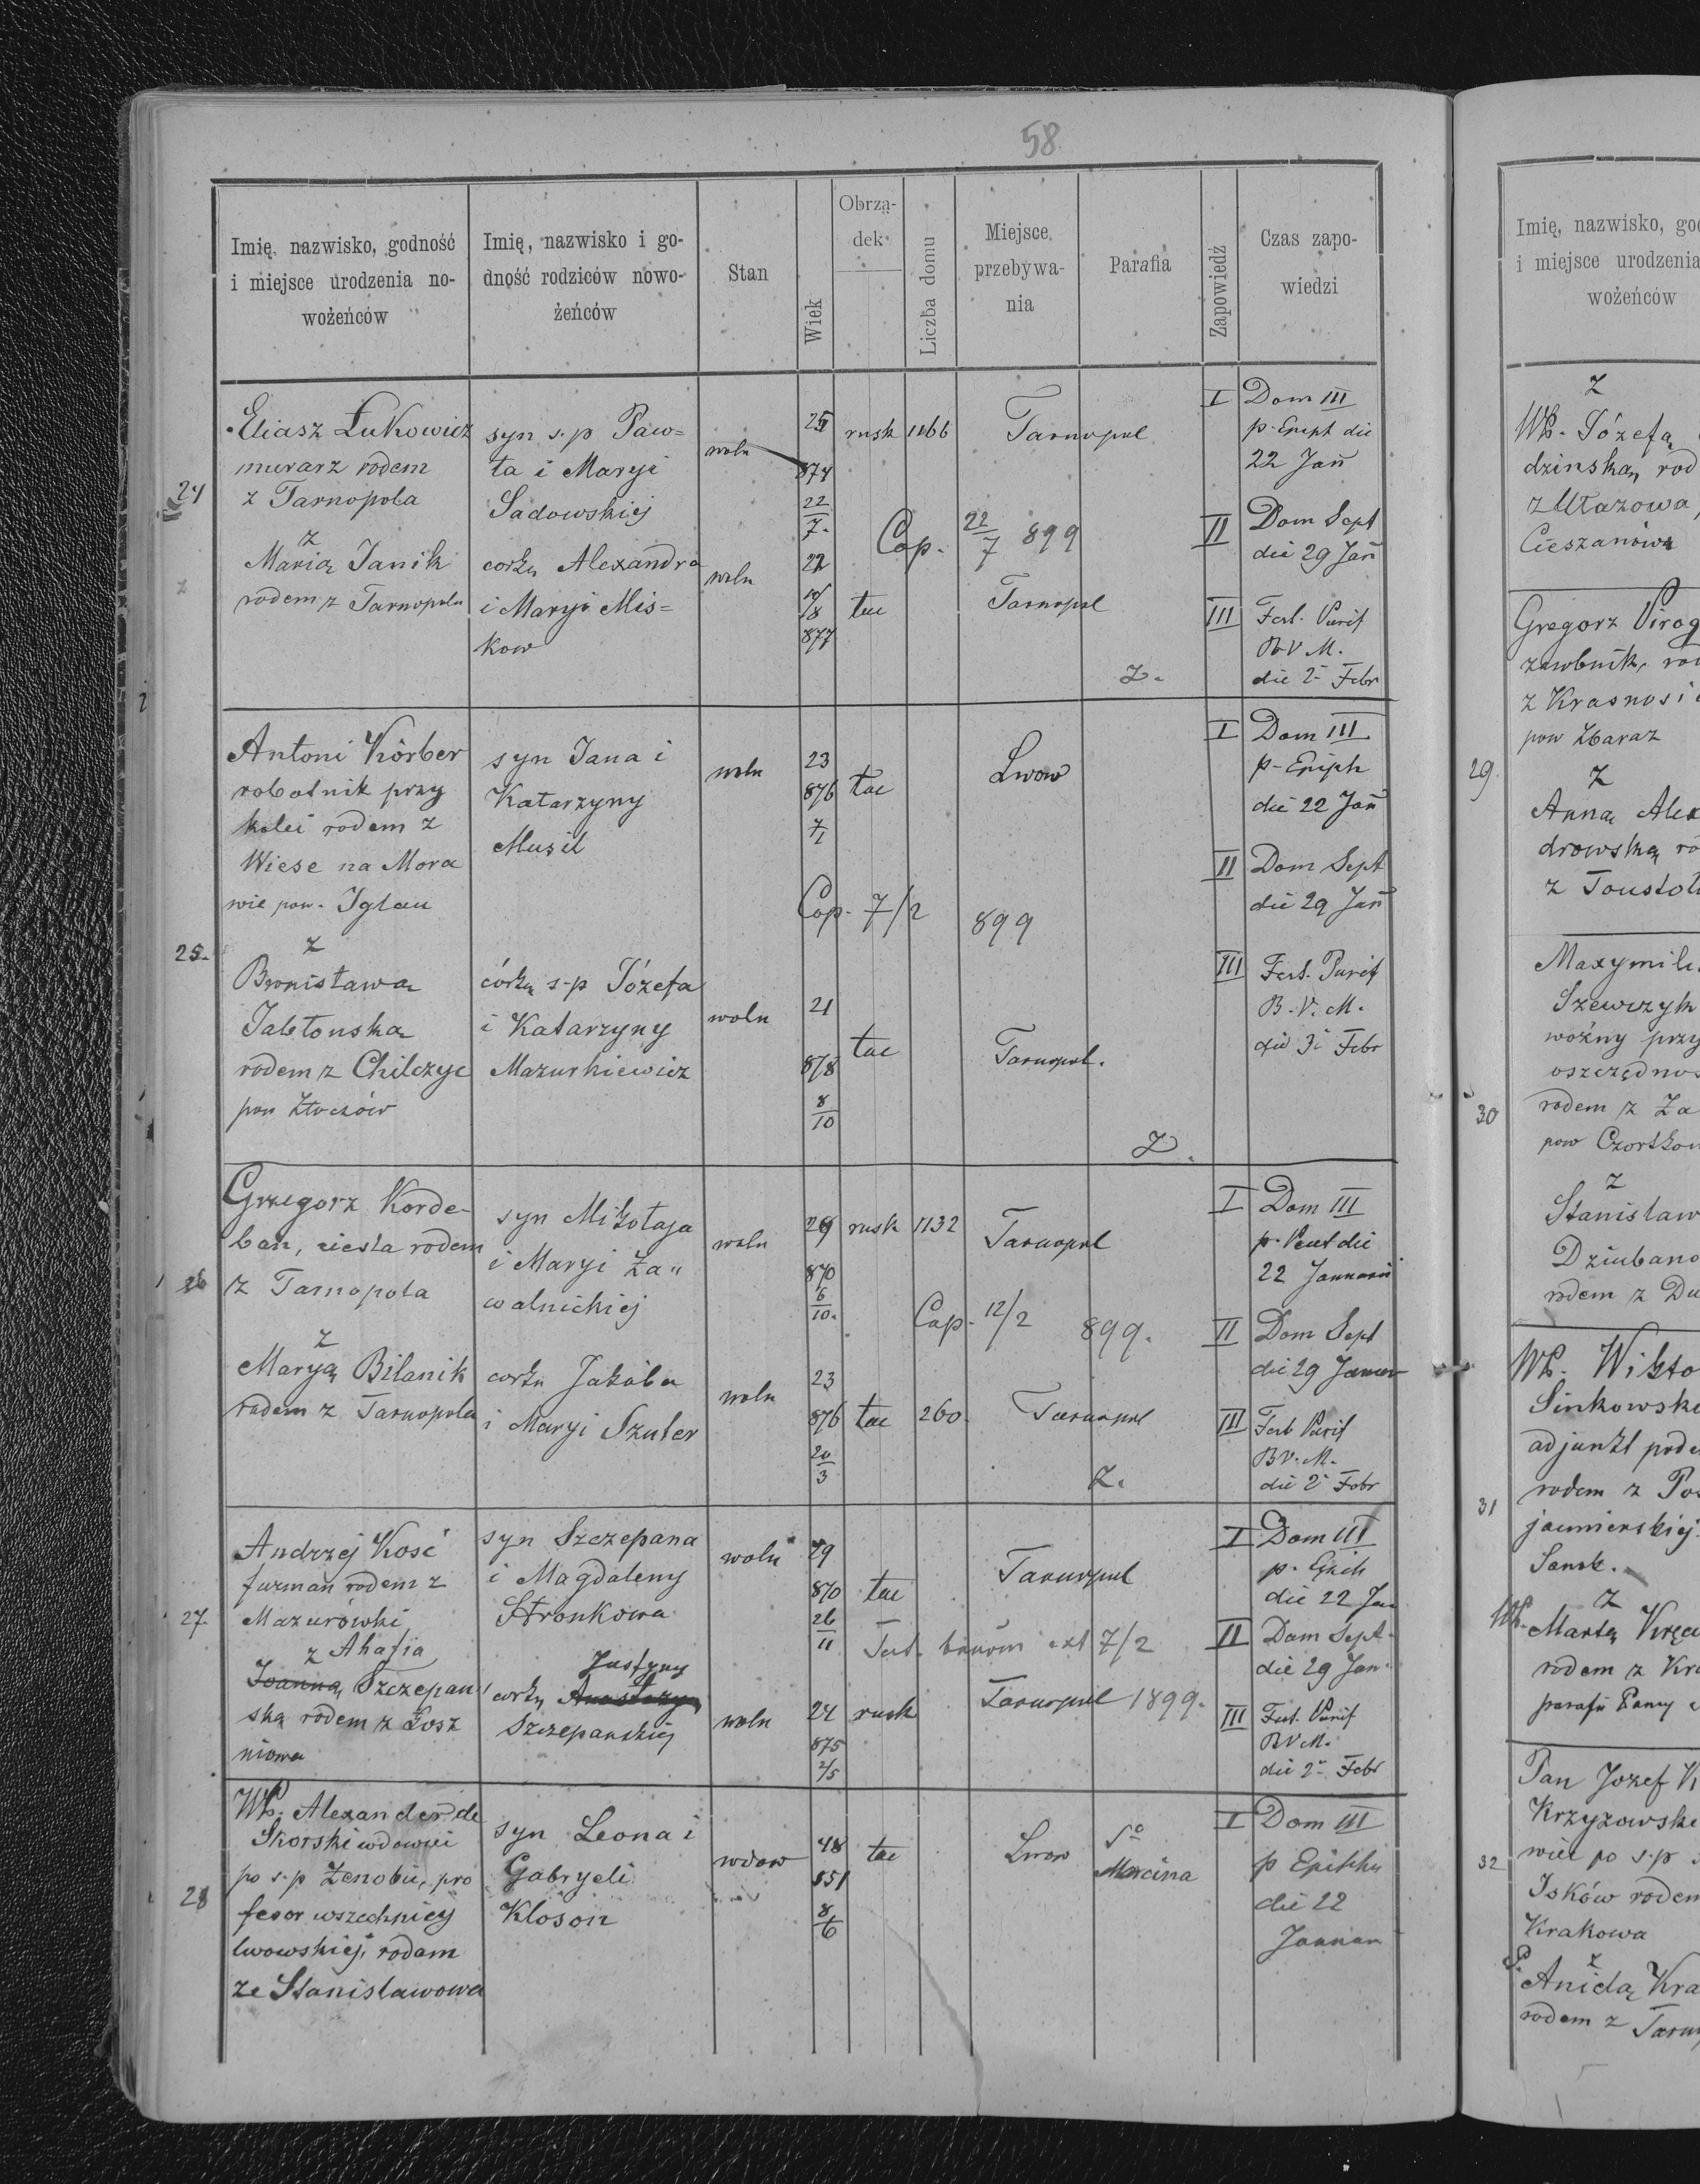 58
Imię, nazwisko, godność
i miejsce urodzenia no-
wożeńców
Imię, nazwisko i go-
dność rodziców nowo-
żeńców
Stan
Wiek
Obrzą-
dek
Liczba domu
Miejsce
przebywa-
nia
Parafia
Zapowiedź
Czas zapo-
wiedzi
24
Eliasz Łukowicz
murarz rodem
z Tarnopola
z
Marią Janik
rodem z Tarnopola
syn s.p Paw=
ła i Maryi
Sadowskiej
corką Alexandra
i Maryi Mis=
kow
woln
woln
25
874
22
7.
22
8
877
rusk
łac
1166
Tarnopol
Cap. 22/7 899
Tarnopol
Z.
I
Dom III
p. Epiph die
22 Jan
II
Dom Sept
die 29 Jan
III
Fest. Purif
B.V M.
die 2 Febr
25.
Antoni Körber
robotnik przy
kolei rodem z
Wiese na Mora
wie pow. Iglau
z
Bronisławą
Jabłonską
rodem z Chilczyc
pow Złoczów
syn Jana i
Katarzyny
Musil
córką s.p Józefa
i Katarzyny
Mazurkiewicz
woln
woln
23
876
7/1
21
878
8
10
łac
łac
Lwow
Cap. 7/2 899
Tarnopol.
Z.
I
Dom III
p. Epiph
die 22 Jan
II
Dom Sept
die 29 Jan
III
Fest. Purif
B. V. M.
die 3 Febr
26
Grzegorz Korde-
ban, ciesla rodem
z Tarnopola
z
Maryą Bilanik
rodem z Tarnopola
syn Mikołaja
i Maryi Za"
walnickiej
corką Jakóba
i Maryi Szuter
woln
woln
29
870
6
10.
23
876
20
3
rusk
łac
1132
260.
Tarnopol
Cap. 12/2 899.
Tarnopol
Z.
I
Dom III
die
22 Januarii
II
Dom Sept
die 29 Januar
III
Fest Purif
B V. M.
die 2 Febr
27.
Andrzej Kość
furman rodem z
Mazurówki
z Ahafią
Joanną Szczepan
ską rodem z Łosz
niowa
syn Szczepana
i Magdaleny
Stronkowa
Justyny
corką
Szczepanskiej
woln
woln
29
870
26
11
24
875
2/5
łac
rusk
Tarnopol
Test. bannom ext 7/2
Tarnopol 1899.
I
Dom III
p. Epih
die 22 Jan
II
Dom Sept.
die 29 Jan.
III
Fest. Purif
BV M.
die 2 Febr
28
Wp. Alexander de
Skorski wdowiec
po s.p Zenobii, pro
fesor wszechnicy
lwowskiej, rodem
ze Stanisławowa
syn Leona i
Gabryeli
Kloson
wdow
48
851
8
6
łac
Lwow
So
Marcina
I
Dom III
p Epiph
die 22
Januar
Imię, nazwisko, god
i miejsce urodzenia
wożeńców
z
Wp. Józefą
dzinską, rod
z
Cieszanówa
29.
Gregorz Pirog
rod
z Krasnosie
pow Zbaraż
z
Anną Alex
drowską ro
z Toustoł
30
Maxymili
Szewczyk
woźny przy
oszczędnos
rodem z Za
pow Czortkow
z
Stanisław
Dziubano
rodem z Du
31
Wp. Wikto
Sinkowski
adjunkt pod
rodem z Pos
jaćmierskiej
Sanok.
z
Wp. Martą Kręc
rodem z Kra
parafii Panny
32
Pan Jozef K
Krzyżowski
wiec po s.p
Isków rodem
Krakowa
z
P. Anidą Kra
rodem z Tarnop